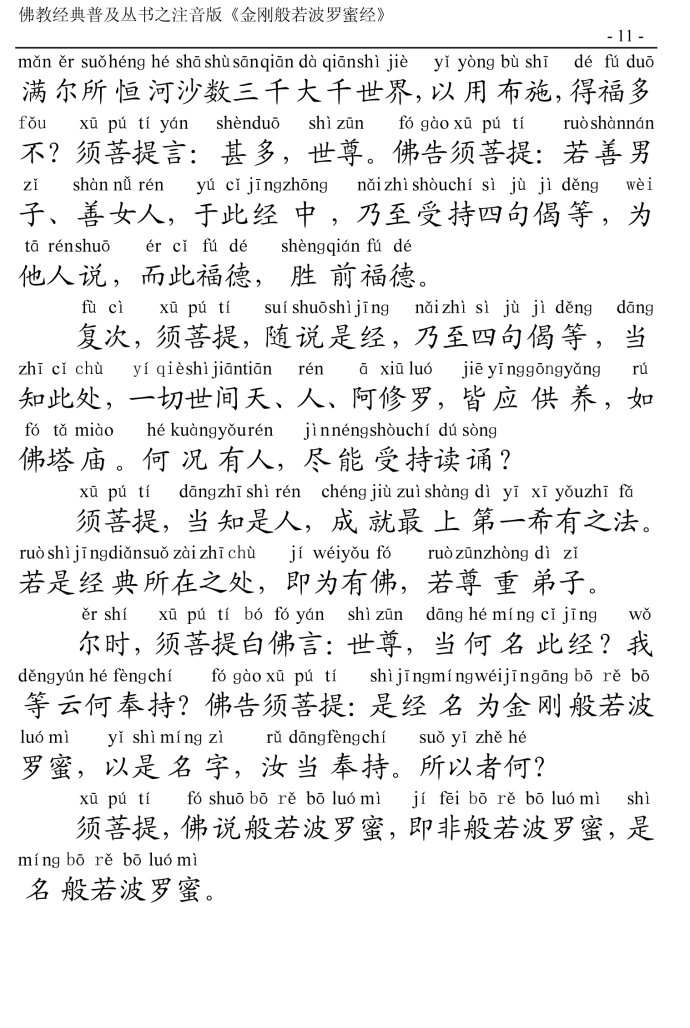 佛教经典普及丛书之注音版《金刚般若波罗蜜经》
- 11 -
mǎn ěr suǒhéng hé shā shù sānqiān dà qiānshì jiè yǐ yòng bù shī dé fú duō
满尔所恒河沙数三千大千世界，以用布施，得福多
fǒu xū pú tí yán shènduō shì zūn fó gào xū pú tí ruòshànnán
不？须菩提言：甚多，世尊。佛告须菩提：若善男
zǐ shàn nǚ rén yú cǐ jīngzhōng nǎizhì shòuchí sì jù jì děng wèi
子、善女人，于此经中，乃至受持四句偈等，为
tā rénshuō ér cǐ fú dé shèngqián fú dé
他人说，而此福德，胜前福德。
fù cì xū pú tí suí shuōshì jīng nǎizhì sì jù jì děng dāng
复次，须菩提，随说是经，乃至四句偈等，当
zhī cǐ chù yí qièshì jiāntiān rén ā xiū luó jiē yīnggōngyǎng rú
知此处，一切世间天、人、阿修罗，皆应供养，如
fó tǎ miào hé kuàngyǒurén jìnnéngshòuchí dú sòng
佛塔庙。何况有人，尽能受持读诵？
xū pú tí dāngzhī shì rén chéng jiù zuì shàng dì yī xī yǒuzhī fǎ
须菩提，当知是人，成就最上第一希有之法。
ruò shì jīngdiǎnsuǒ zài zhī chù jí wéiyǒu fó ruò zūnzhòng dì zǐ
若是经典所在之处，即为有佛，若尊重弟子。
ěr shí xū pú tí bó fó yán shì zūn dāng hé míng cǐ jīng wǒ
尔时，须菩提白佛言：世尊，当何名此经？我
děngyún hé fèngchí fó gào xū pú tí shì jīngmíngwéijīngāng bō rě bō
等云何奉持？佛告须菩提：是经名为金刚般若波
luó mì yǐ shì míng zì rǔ dāngfèngchí suǒ yǐ zhě hé
罗蜜，以是名字，汝当奉持。所以者何？
xū pú tí fó shuō bō rě bō luó mì jí fēi bō rě bō luó mì shì
须菩提，佛说般若波罗蜜，即非般若波罗蜜，是
míng bō rě bō luó mì
名般若波罗蜜。